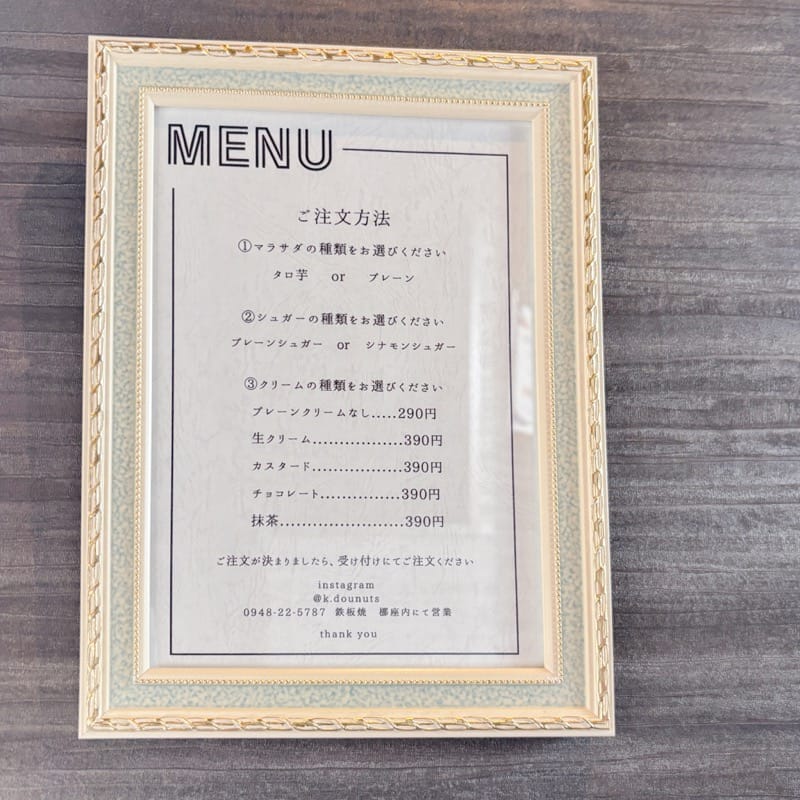 MENU
ご注文方法
①マラサダの種類をお選びください
タロ芋 or プレーン
②シュガーの種類をお選びください
プレーンシュガー or シナモンシュガー
③クリームの種類をお選びください
プレーンクリームなし.....290円
生クリーム..............390円
カスタード..............390円
チョコレート............390円
抹茶.......................390円
ご注文が決まりましたら、受け付けにてご注文ください
instagram
@k.dounuts
0948-22-5787 鉄板焼 梛座内にて営業
thank you